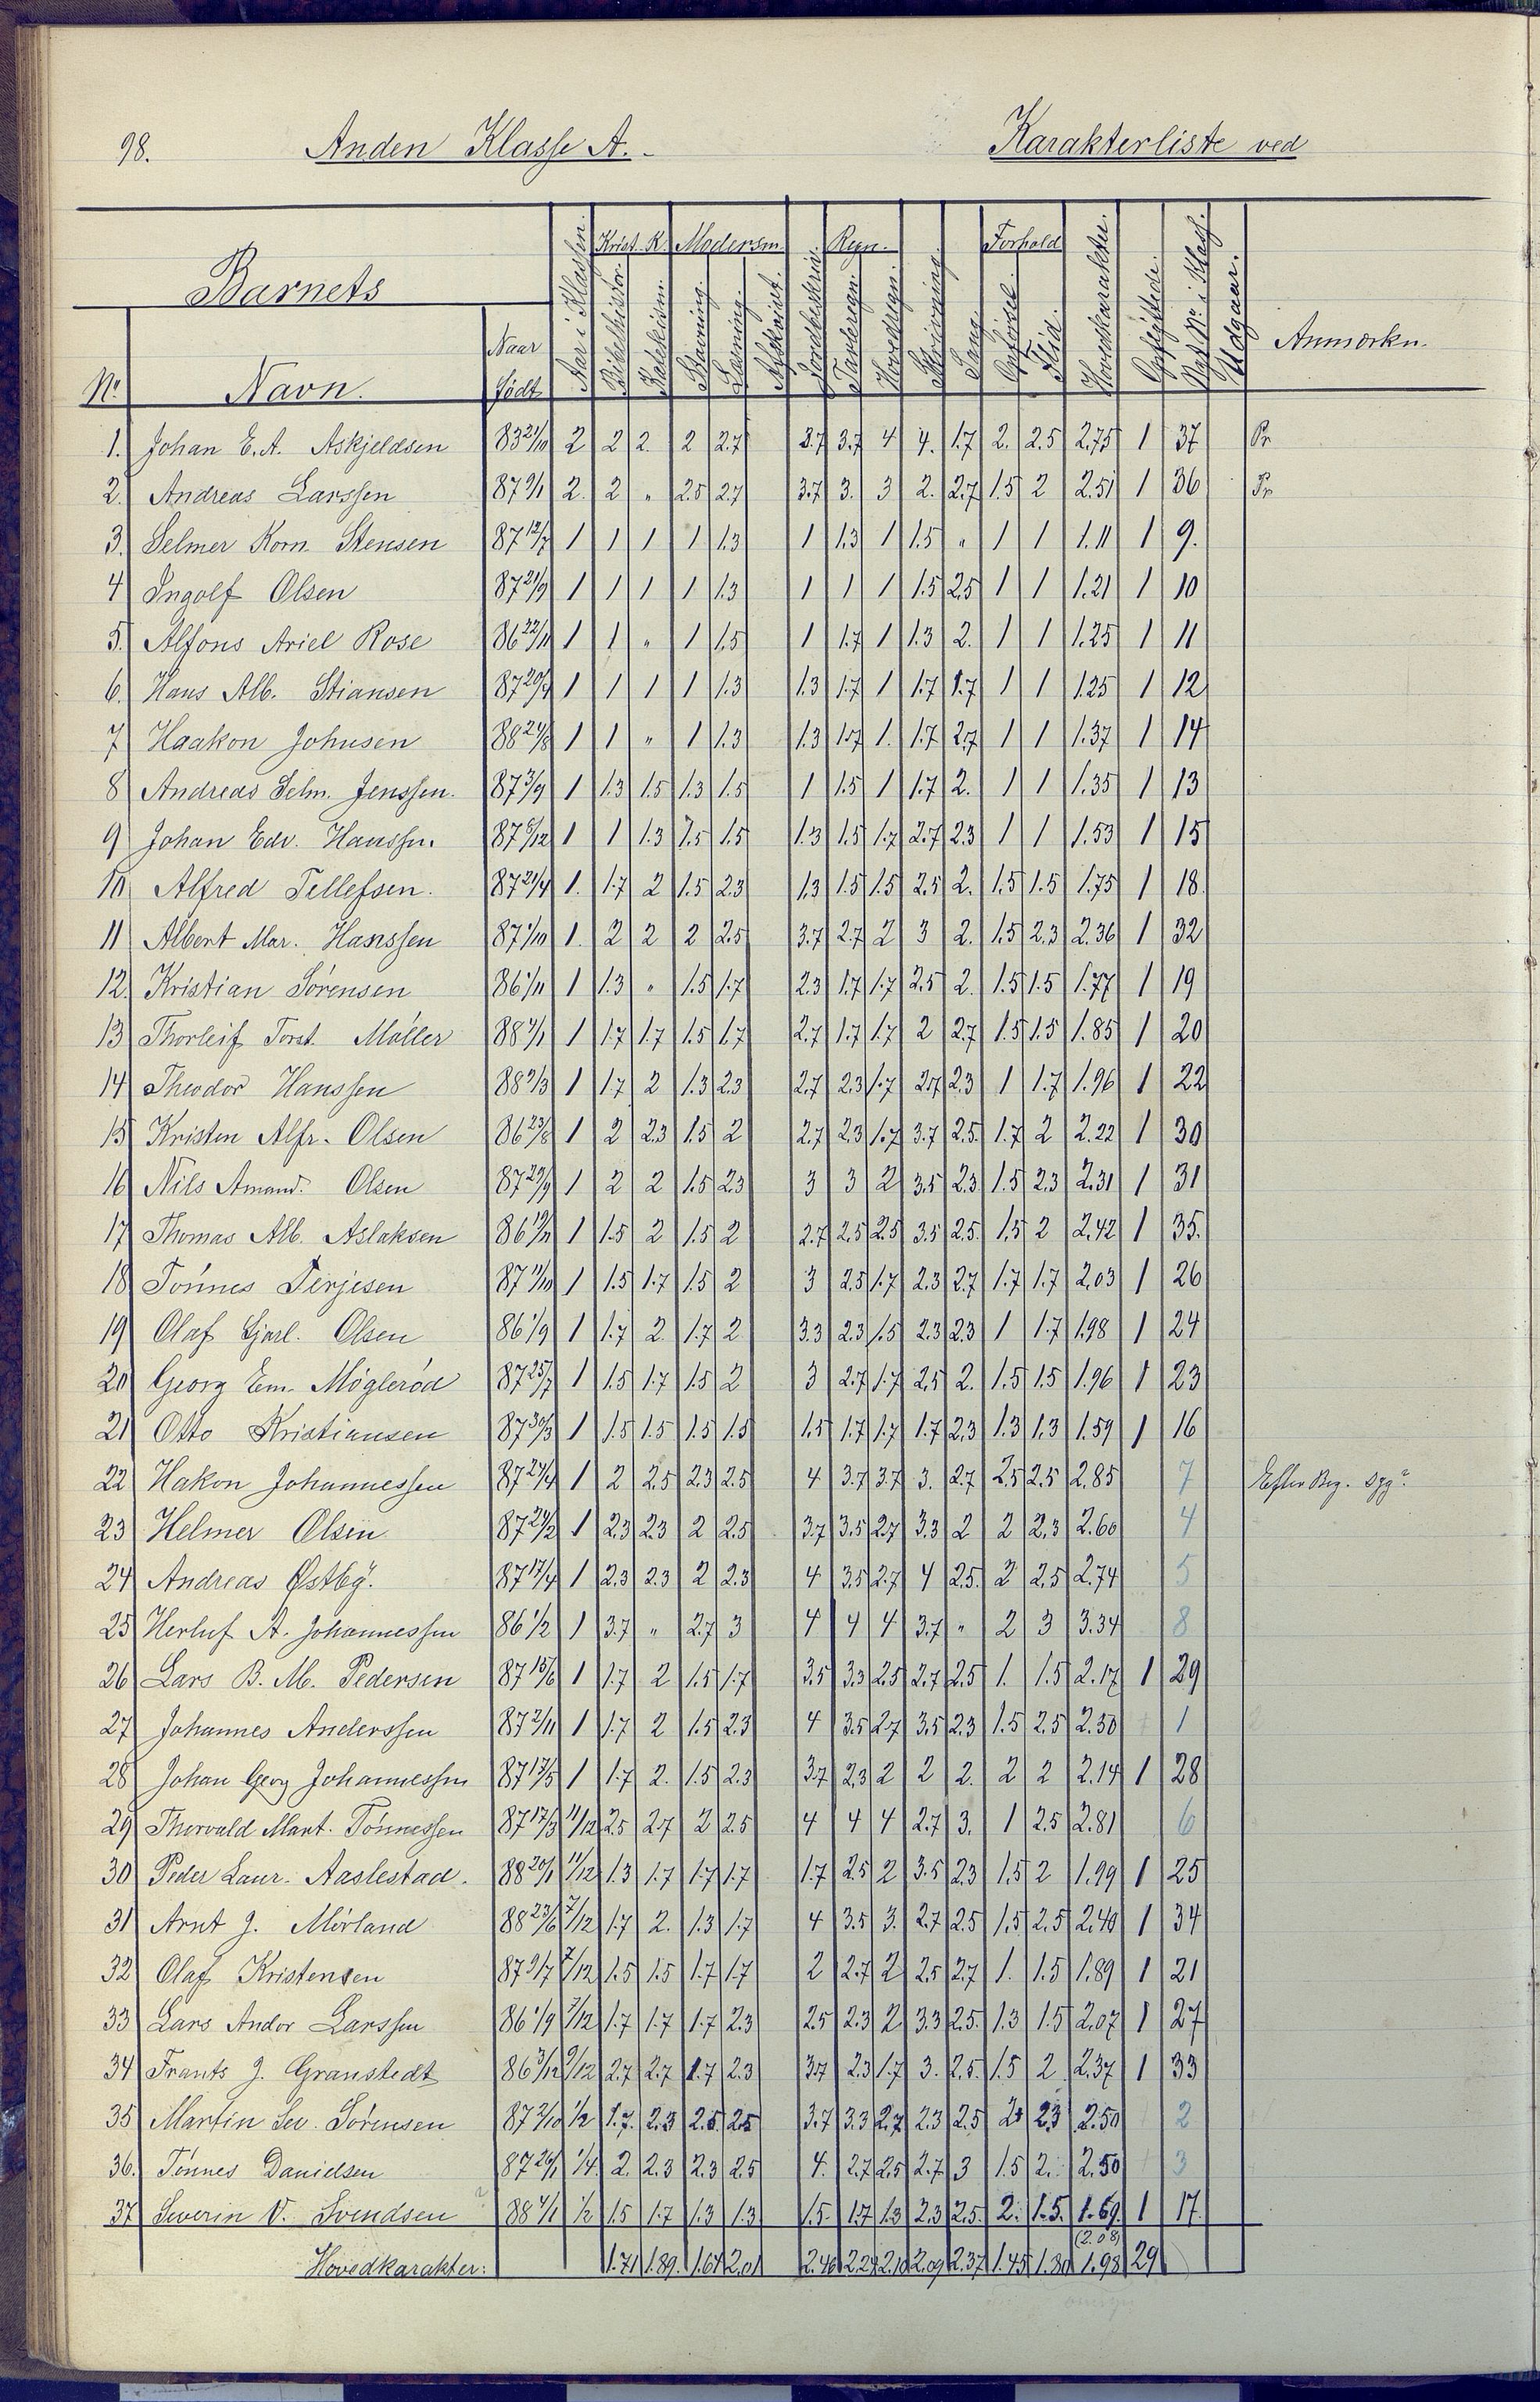 98. Anden Klasse A. Karakterliste ved
Barnets
No. Navn. Naar født Aar i Klassen Krist. K. Bibelhistor. Katekism. Modersm. Stavning. Læsning. Afskrivt. Regn. Tavleregn. Hovedregn. Skrivning. Sang. Forhold Opførsel. Flid. Hovedkarakter. Opflyttede. Nyt No. i Klass. Udgaar. Anmærkn.
1. Johan E. A. Askjeldsen 83 21/10 2 2 2. 2 2.7 3.7 3.7 4 4. 1.7 2. 2.5 2.75 1 37 Pr
2. Andreas Larssen 87 9/1 2. 2 " 2.5 2.7 3.7 3. 3 2. 2.7 1.5 2 2.51 1 36 Pr
3. Selmer Korn. Stensen 87 12/7 1 1 1 1 1.3 1 1.3 1 1.5 " 1 1 1.11 1 9.
4 Ingolf Olsen 87 21/9 1 1 1 1 1.3 1 1 1 1.5 2.5 1 1 1.21 1 10
5. Alfons Ariel Rose 86 22/11 1 1 " 1 1.5 1 1.7 1 1.3 2. 1 1 1.25 1 11
6. Hans Alb. Stiansen 87 20/7 1 1 1 1 1.3 1.3 1.7 1 1.7 1.7 1 1 1.25 1 12
7 Haakon Johnsen 88 24/8 1 1 " 1 1.3 1.3 1.7 1. 1.7 2.7 1 1 1.37 1 14
8 Andreas Selm. Jenssen. 87 3/9 1 1.3 1.5 1.3 1.5 1 1.5 1 1.7 2. 1 1 1.35 1 13
9 Johan Edv. Hanssen. 87 6/12 1 1 1.3 1.5 1.5 1.3 1.5 1.7 2.7 2.3 1 1 1.53 1 15
10 Alfred Tellefsen. 87 21/4 1. 1.7 2 1.5 2.3 1.3 1.5 1.5 2.5 2. 1.5 1.5 1.75 1 18.
11 Albert Mar. Hanssen 87 1/10 1. 2 2 2 2.5 3.7 2.7 2 3 2. 1.5 2.3 2.36 1 32
12. Kristian Sørensen 86 1/11 1 1.3 " 1.5 1.7 2.3 1.7 1.7 2.5 2. 1.5 1.5 1.77 1 19
13 Thorleif Torst. Møller 88 4/1 1 1.7 1.7 1.5 1.7 2.7 1.7 1.7 2 2.7 1.5 1.5 1.85 1 20
14 Theodor Hanssen 88 9/3 1 1.7 2 1.3 2.3 2.7 2.3 1.7 2.7 2.3 1 1.7 1.96 1 22
15 Kristen Alfr. Olsen 86 23/8 1 2 2.3 1.5 2 2.7 2.3 1.7 3.7 2.5. 1.7 2 2.22 1 30
16 Nils Amand. Olsen 87 29/9 1 2 2 1.5 2.3 3 3 2 3.5 2.3 1.5 2.3 2.31 1 31
17 Thomas Alb. Aslaksen 86 1 1.5 2 1.5 2 2.7 2.5 2.5 3.5 2.5. 1.5 2 2.42 1 35.
18 Tønnes Terjesen 87 11/10 1 1.5 1.7 1.5 2 3 2.5 1.7 2.3 2.7 1.7 1.7 2.03 1 26
19 Olaf Olsen 86 1/9 1 1.7 2 1.7 2 3.3 2.3 1.5 2.3 2.3 1 1.7 1.98 1 24
20 Georg Em. Møglerød 87 25/7 1 1.5 1.7 1.5 2 3 2.7 1.7 2.5 2. 1.5 1.5 1.96 1 23
21 Otto Kristiansen 87 30/3 1 1.5 1.5 1.5 1.5 1.5 1.7 1.7 1.7 2.3 1.3 1.3 1.59 1 16
22 Hakon Johannessen 87 24/4 1 2 2.5 2.3 2.5 4 3.7 3.7 3. 2.7 2.5 2.5 2.85 7 Efter Beg.
23 Helmer Olsen 87 24/2 1 2.3 2.3 2 2.5 3.7 3.5 2.7 3.3 2 2 2.3 2.60 4
24 Andreas Østby. 87 17/4 1 2.3 2.3 2 2.3 4 3.5 2.7 4 2.5. 2 2.5 2.74 5
25 Herluf A. Johannessen 86 1/2 1 3.7 " 2.7 3 4 4 4 3.7 " 2 3 3.34 8
26 Lars B. M. Pedersen 87 15/6 1 1.7 2 1.5 1.7 3.5 3.3 2.5 2.7 2.5 1. 1.5 2.17 1 29
27 Johannes Anderssen 87 2/11 1 1.7 2 1.5 2.3 4 3.5 2.7 3.5 2.3 1.5 2.5 2.50 1
28 Johan Georg Johannessen 87 13/5 1 1.7 2. 1.5 2.3 3.7 2.3 2 2 2. 2 2 2.14 1 28
29 Thorvald Mart. Tønnessen 87 17/3 11/12 2.5 2.7 2 2.5 4 4 4 2.7 3. 1 2.5 2.81 6
30 Peder Laur. Aaslestad. 88 20/1 11/12 1.3 1.7 1.7 1.7 1.7 2.5 2 3.5 2.3 1.5 2 1.99 1 25
31 Arnt J. Mørland 88 23/6 7/12 1.7 2. 1.3 1.7 4 3.5 3. 2.7 2.5 1.5 2.5 2.40 1 34
32 Olaf Kristensen 87 9/7 7/12 1.5 1.5 1.7 1.7 2 2.7 2 2.5 2.7 1. 1.5 1.89 1 21
33 Lars Andor Larssen 86 1/9 7/12 1.7 1.7 1.7 2.3 2.5 2.3 2 3.3 2.5. 1.3 1.5 2.07 1 27
34 Frants J. Granstedt 86 3/12 9/12 2.7 2.7 1.7 2.3 3.7 2.3 1.7 3. 2.5. 1.5 2 2.37 1 33
35 Martin Sev. Sørensen 87 2/10 1/2 1.7. 2.3 2.5. 2.5 3.7 3.3 2.7 2.3 2.5 2 2.3 2.50 2
36. Tønnes Danielsen 87 26/1 1/4. 2. 2.3 2.3 2.5 4. 2.7 2.5 2.7 3 1.5 2. 2.50 3
37 Severin V. Svendsen 88 4/1 1/2 1.5 1.7 1.3 1.3 1.5. 1.7 1.3 2.3 2.5. 2. 1.5. 1.69. 1 17.
(2.08)
Hovedkarakter: 1.71 1.89. 1.67 2.01 2.46 2.24 2.10 2.09 2.37 1.45 1.80 1.98 29